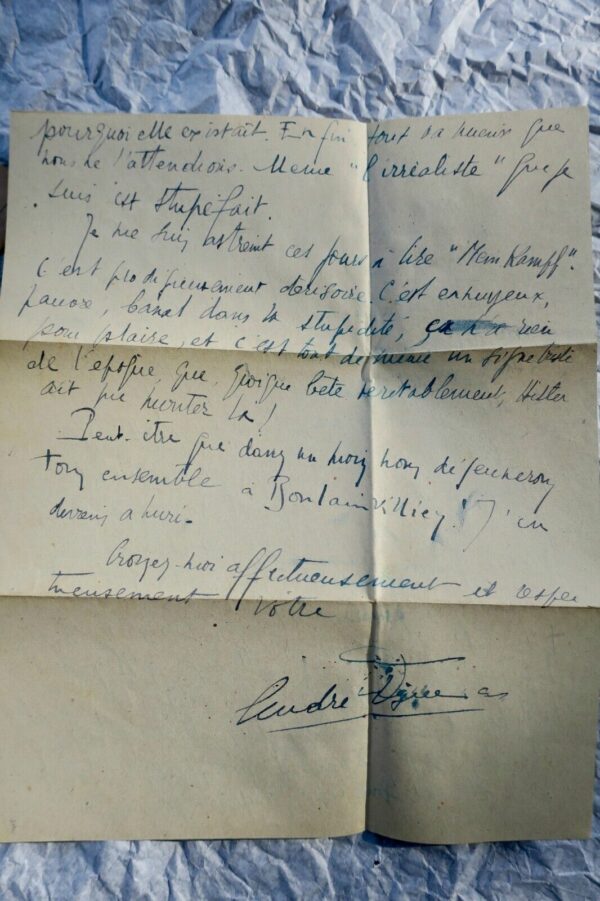 pourquoi elle existait. Enfin tout va mieux que
nous ne l'attendions. Meme "l'irréaliste" que je
suis est stupéfait.
Je me suis astreint ces jours à lire "Mein Kampf".
C'est prodigieusement dérisoire. C'est ennuyeux,
pauvre, banal dans la stupidité, ça n'a rien
pour plaire, et c'est tout de meme un signe
de l'époque que, quoique bête véritablement, Hitler
ait pu
Peut-être que dans un mois nous déjeunerons
tous ensemble à Boulainvilliers! J'en
deviens ahuri.
Croyez-moi affectueusement et respec
tueusement votre
André